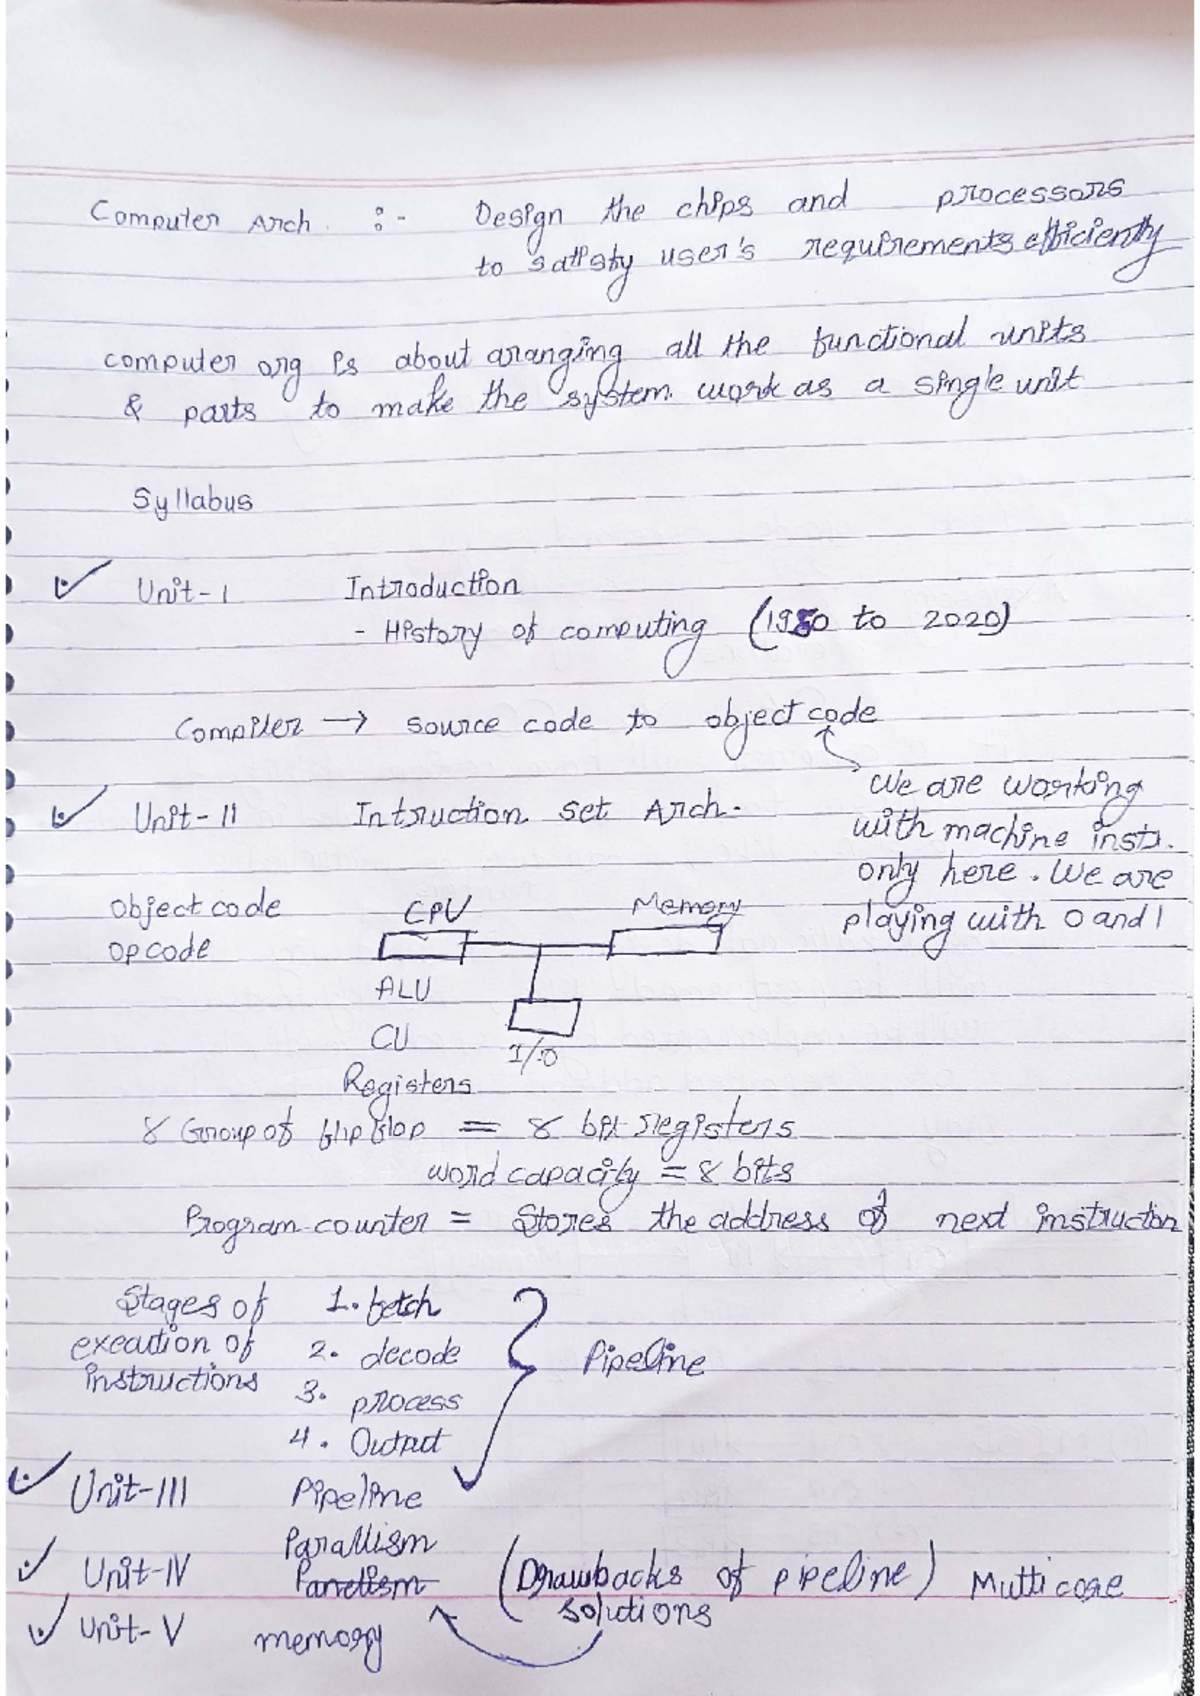 Computer Arch. :- Design the chips and processors
to satisfy user's requirements efficiently
computer org is about aranging all the functional units
& parts to make the system work as a single unit
Syllabus
Unit-I Introduction
- History of computing (1950 to 2020)
Compiler → source code to object code
We are working
with machine instr.
only here. We are
playing with 0 and 1
Unit-II Intruction set Arch.
Object code CPU Memory
opcode
ALU
CU I/O
Registers
8 Group of flip flop = 8 bit registers
word capacity = 8 bits
Program counter = Stores the address of next instruction
Stages of
execution of
instructions
1. fetch
2. decode
3. process
4. Output
Pipeline
Unit-III Pipeline
Parallism
Unit-IV (Drawbacks of pipeline) Multicore
solutions
Unit-V memory